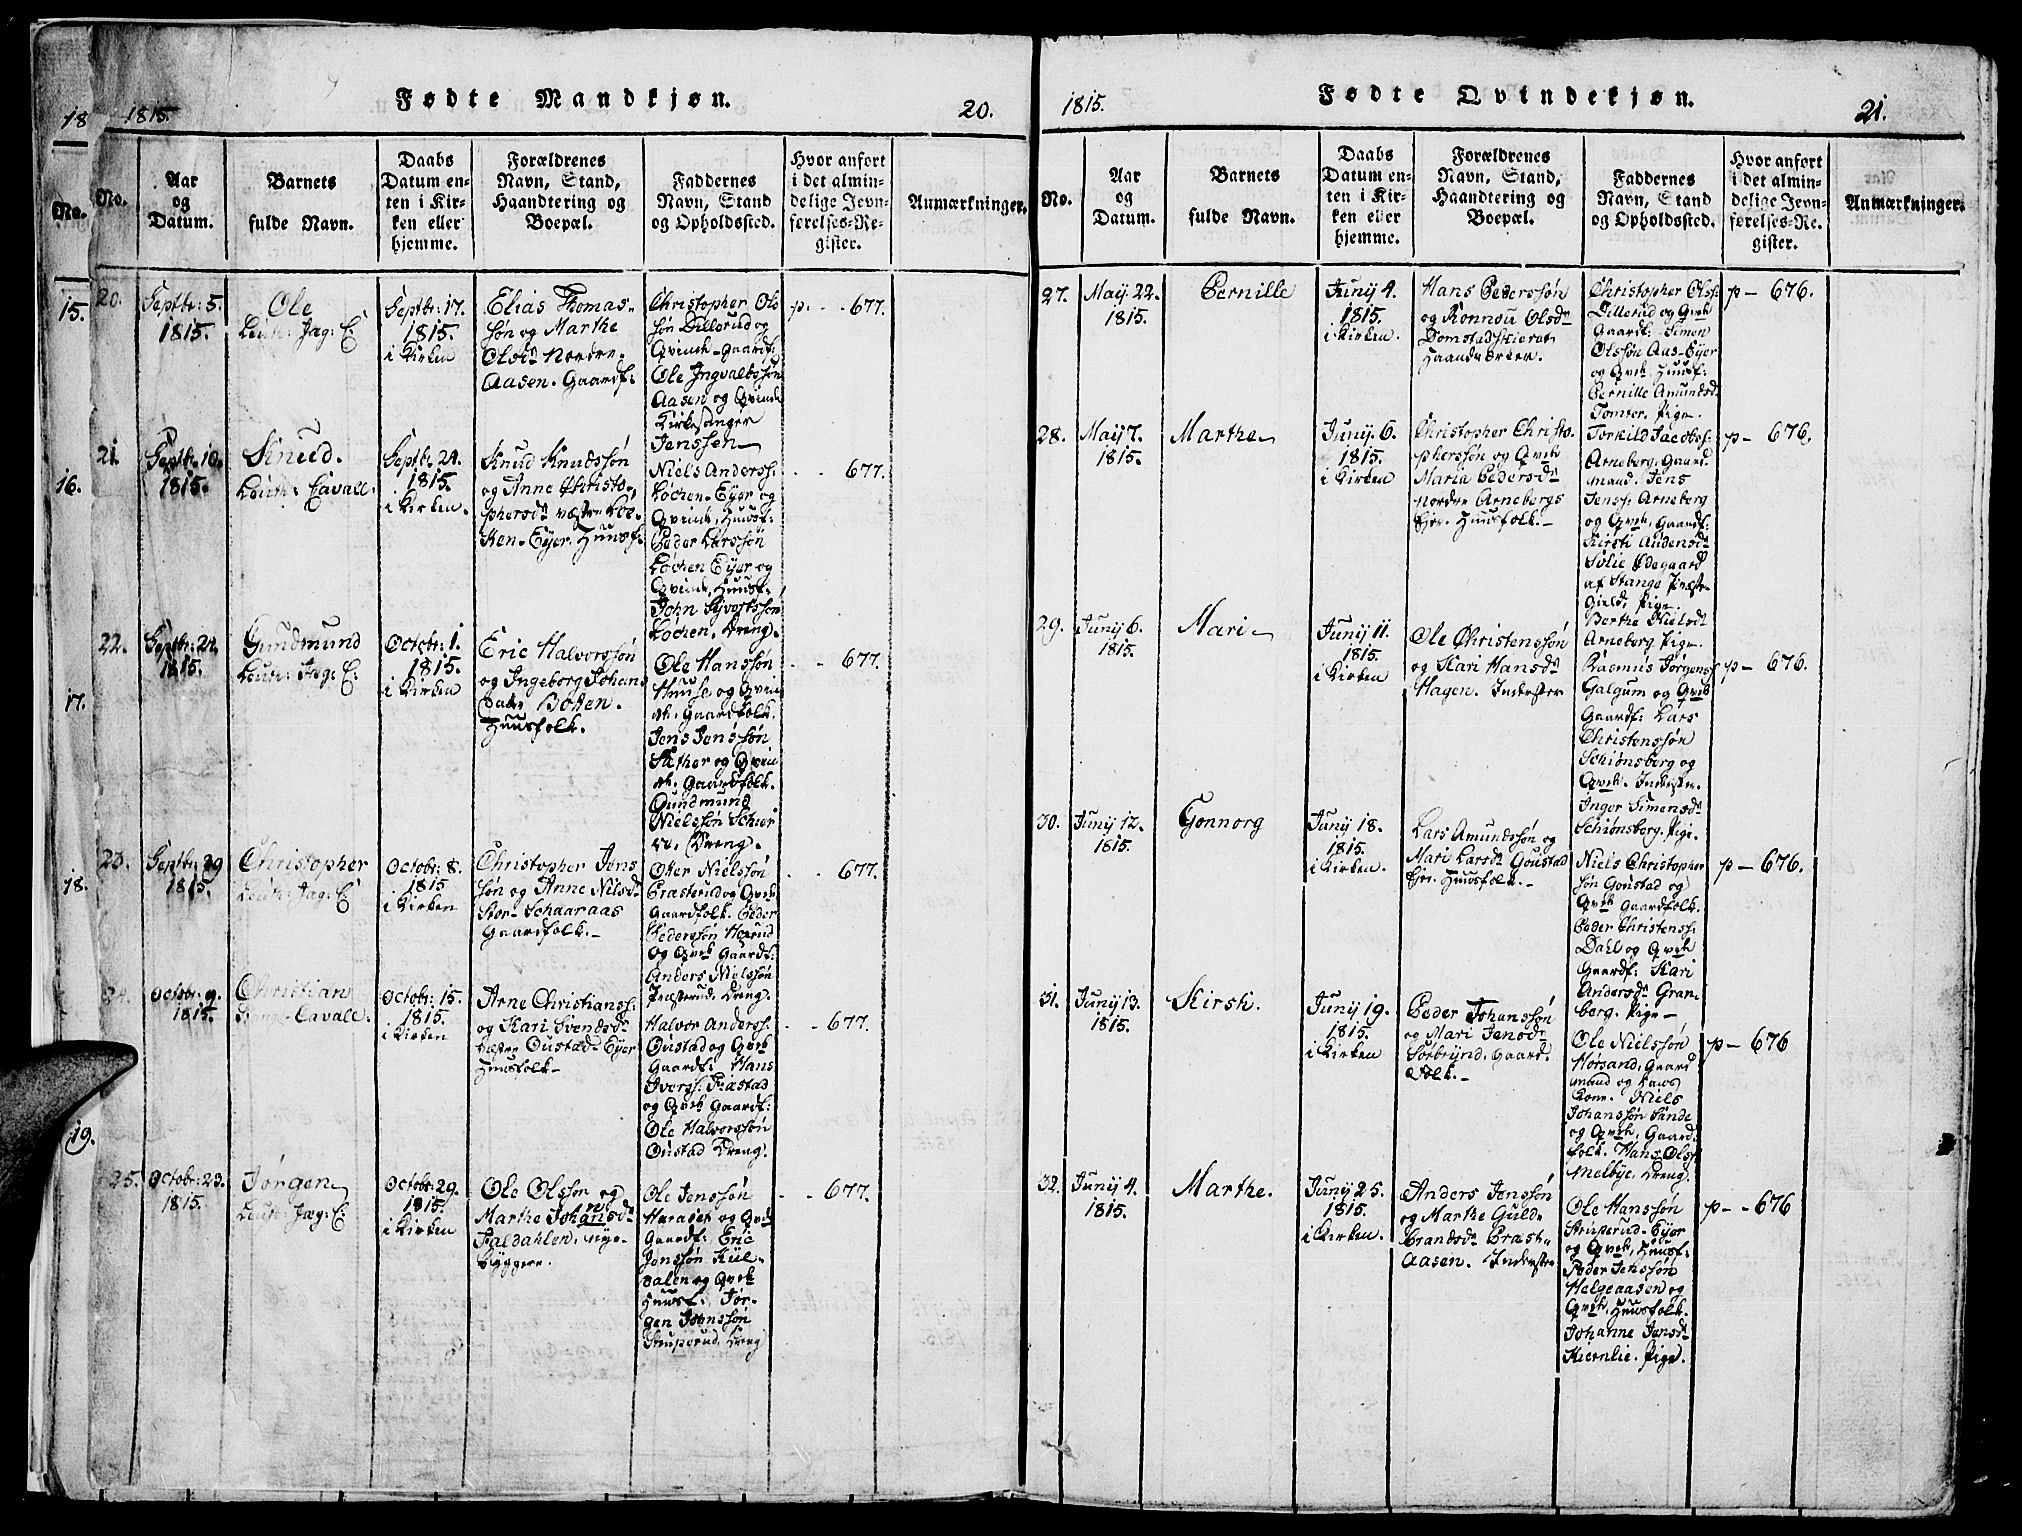 18
No.
15.
16.
17.
18.
19.
1815.
Fødte Mandkjøn.
20.
No.
Aar
og
Datum.
Barnets
fulde Navn.
Daabs
Datum en-
ten i Kir-
ken eller
hjemme.
Forældrenes
Navn, Stand,
Haandtering og
Boepæl.
Faddernes
Navn, Stand
og Opholdssted.
Hvor anført
i det almin-
delige Jevn-
førelses-Re-
gister.
Anmærkninger.
20.
Septbr: 5.
1815.
Ole
Leuth: Jæg: C:
Septbr: 17.
1815.
i Kirken
Elias Thomas-
søn og Marthe
Olsdr Nordre-
Aasen. Gaardf:
Christopher Ole
søn Dillerud og
Qvinde-Gaardf:
Ole Ingvaldssøn
Aasen og Qvinde
Kirkesanger
Jenssen
p. - - 677.
21.
Septbr. 10.
1815.
Knud.
Leuth: Cavall:
Septbr. 24.
1815.
i Kirken.
Knud Knudssøn
og Anne Christo-
phersdr væstre Lø-
ken-Eyer. Huusf:
Niels Anderss:
Løchen-Eyer og
Qvinde, Huusf:
Peder Larssøn
Løchen Eyer og
Qvinde, Huusf:
John Syvertssøn
Løchen, Dreng.
- - 677.
22.
Septbr: 24.
1815.
Gundmund
Leuth: Jæg: C:
Octobr: 1.
1815.
i Kirken
Eric Halvorssøn
og Ingeborg Johans
Datr Botten.
Huusfolk.
Ole Hanssøn
Huuse og Qvin
de. Gaardfolk.
Jens Jenssøn
Sæther og Qvin
de. Gaardfolk.
Gundmund
Nielssøn Schier
ve. Dreng.
- - 677.
23.
Septbr: 29
1815.
Christopher
Leuth: Jæg: C:
Octobr: 8.
1815
i Kirken
Christopher Jens
søn og Anne Nilsdr
Stor-Schaaraas
Gaardfolk.-
Otter Nielssøn
Præsterud og Qvde
Gaardfolk. Peder
Pederssøn Horrud
og Qvde Gaardf:
Anders Nielssøn
Præsterud. Dreng.
- - 677.
24.
Octobr: 9.
1815.
Christian
Cavall:
Octobr: 15.
1815.
i Kirken
Arne Christianss:
og Kari Svendsdr
væstre Oustad-Eyer
Huusfolk-
Halvor Anderss:
Oustad og Qvde
Gaardf: Hans
Iverss: Fæstad
og Qvde Gaardf:
Ole Halvorssøn
Oustad Dreng.
- - 677.
25.
Octobr: 23.
1815.
Jørgen
Leuth: Jæg: C:
Octobr: 29.
1815.
i Kirken
Ole Olssøn og
Marthe Johansdr
Faldahlen. nye-
byggere.
Ole Jenssøn
Haraset og Qvde
Gaardf: Eric
Jonssøn Kül-
dalen og Qvde
Huusf: Jør-
gen Johnssøn
Struperud. Dreng
- - 677.
1815.
Fødte Qvindekjøn.
21.
No.
Aar
og
Datum.
Barnets
fulde Navn.
Daabs
Datum en-
ten i Kir-
ken eller
hjemme.
Forældrenes
Navn, Stand,
Haandtering og
Boepæl.
Faddernes
Navn, Stand
og Opholdssted.
Hvor anført
i det almin-
delige Jevn-
førelses-Re-
gister.
Anmærkninger.
27.
May. 22.
1815.
Pernille
Juny 4.
1815.
i Kirken.
Hans Pederssøn
og Ronnou Olsdr
Domstadskieret
Haandværker.
Christopher Olss:
Dillerud og Qvde
Gaardf: Simon
Olssøn Aas-Eyer
og Qvde. Huusf:
Pernille Amundsdr
Tomter. Pige.
p - 676.
28.
May 7.
1815.
Marthe
Juny. 6.
1815.
i Kirken
Christopher Christo-
pherssøn og Qvde
Maria Pedersdr
Nordre Arnebergs
Ejer. Huusfolk.-
Torkild Jacobss:
Arneberg. Gaard
mand. Jens
Jenss: Arneberg
og Qvde, Gaardf:
Kirsti Audensdr
Solie Ødegaard
af Stange Præste-
Gield, Pige.
Berthe Nielsdr
Arneberg Pige.
p - 676.
29.
Juny 6.
1815.
Mari
Juny 11.
1815.
i Kirken
Ole Christenssøn
og Kari Hansdr
Hagen. Inderster
Rasmus Jørgenss
Galgum og Qvde
Gaardf: Lars
Christenssøn
Schiønsberg og
Qvde. Inderster.
Inger Simensdr
Schiønsberg. Pige.
p - 676.
30.
Juny 12.
1815.
Gonnorg
Juny 18.
1815.
i Kirken
Lars Amundssøn og
Mari Larsdr Goustad
Ejer. Huusfolk.-
Niels Christopher
søn Goustad og
Qvde Gaardfolk.
Peder Christenss:
Dahl og Qvde
Gaardf: Kari
Andersdr Gran-
berg. Pige-
p - 676.
31.
Juny 13.
1815.
Kirsti.
Juny 19.
1815.
i Kirken
Peder Johanssøn
og Mari Jensdr
Sørbrynd. Gaard-
Folk.-
Ole Nielssøn
Hørsand, Gaard
mand og hans
Kone. Niels
Johanssøn Sande
og Qvde. Gaard-
folk. Hans Olss
Melbye. Dreng.
p - 676
32.
Juny 4.
1815.
Marthe.
Juny 25.
1815.
i Kirken.
Anders Jenssøn
og Marthe Guld-
brandsdr Præst-
Aasen. Inderster
Ole Hanssøn
Struperud-Eyer
og Qvde, Huusf:
Peder Jenssøn
Helgeaasen og
Qvde. Huusfolk.
Johanne Jensdr
Kiernlie. Pige.
p - - 676